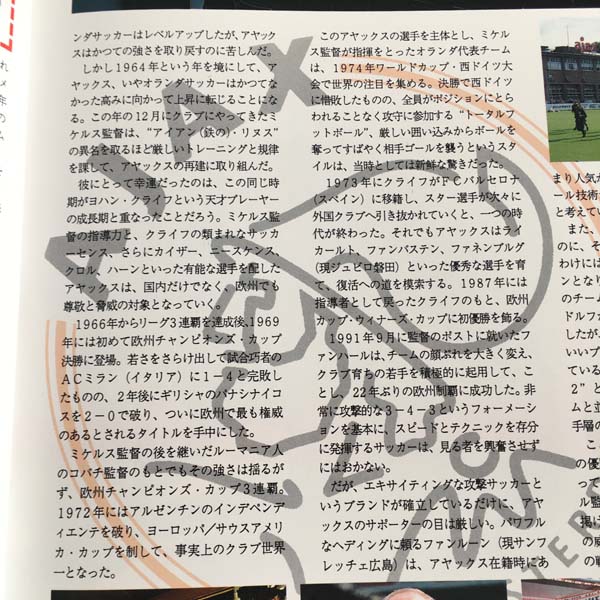 ンダサッカーはレベルアップしたが、アヤック
スはかつての強さを取り戻すのに苦しんだ。
しかし1964年という年を境にして、ア
ヤックス、いやオランダサッカーはかつてな
かった高みに向かって上昇に転じることにな
る。この年の12月にクラブにやってきたミ
ケルス監督は、“アイアン(鉄の)・リヌス”
の異名を取るほど厳しいトレーニングと規律
を課して、アヤックスの再建に取り組んだ。
彼にとって幸運だったのは、この同じ時
期がヨハン・クライフという天才プレーヤー
の成長期と重なったことだろう。ミケルス監
督の指導力と、クライフの類まれなサッカ
ーセンス、さらにカイザー、ニースケンス、
クロル、ハーンといった有能な選手を配した
アヤックスは、国内だけでなく、欧州でも
尊敬と脅威の対象となっていく。
1966年からリーグ3連覇を達成後、1969
年には初めて欧州チャンピオンズ・カップ
決勝に登場。若さをさらけ出して試合巧者の
ACミラン(イタリア)に1-4と完敗し
たものの、2年後にギリシャのパナシナイコ
スを2-0で破り、ついに欧州で最も権威
のあるとされるタイトルを手中にした。
ミケルス監督の後を継いだルーマニア人
のコバチ監督のもとでもその強さは揺るが
ず、欧州チャンピオンズ・カップ3連覇。
1972年にはアルゼンチンのインデペンデ
ィエンテを破り、ヨーロッパ/サウスアメリ
カ・カップを制して、事実上のクラブ世界
一となった。
このアヤックスの選手を主体とし、ミケル
ス監督が指揮をとったオランダ代表チーム
は、1974年ワールドカップ・西ドイツ大
会で世界の注目を集める。決勝で西ドイツ
に惜敗したものの、全員がポジションにとら
われることなく攻守に参加する“トータルフ
ットボール”、厳しい囲い込みからボールを
奪ってすばやく相手ゴールを襲うというスタ
イルは、当時としては新鮮な驚きだった。
1973年にクライフがFCバルセロナ
(スペイン)に移籍し、スター選手が次々に
外国クラブへ引き抜かれていくと、一つの時
代が終わった。それでもアヤックスはライ
カールト、ファンバステン、ファネンブルグ
(現ジュビロ磐田)といった優秀な選手を育
て、復活への道を模索する。1987年には
指導者として戻ったクライフのもと、欧州
カップ・ウィナーズ・カップに初優勝を飾る。
1991年9月に監督のポストに就いたフ
ァンハールは、チームの顔ぶれを大きく変え、
クラブ育ちの若手を積極的に起用して、こ
とし、22年ぶりの欧州制覇に成功した。非
常に攻撃的な3-4-3というフォーメーシ
ョンを基本に、スピードとテクニックを存分
に発揮するサッカーは、見る者を興奮させず
にはおかない。
だが、エキサイティングな攻撃サッカーと
いうブランドが確立しているだけに、アヤ
ックスのサポーターの目は厳しい。パワフル
なヘディングに頼るファンルーン(現サンフ
レッチェ広島)は、アヤックス在籍時にあ
まり人気が
ール技術
と考えてい
また、
のに、そ
わけには
ンとなり
のチーム
ドルファ
ましたが
いいプレ
ている
2”と
ムと並
手層の
この
の優
って
ル監
揚げ
の威
の戦
AJAX